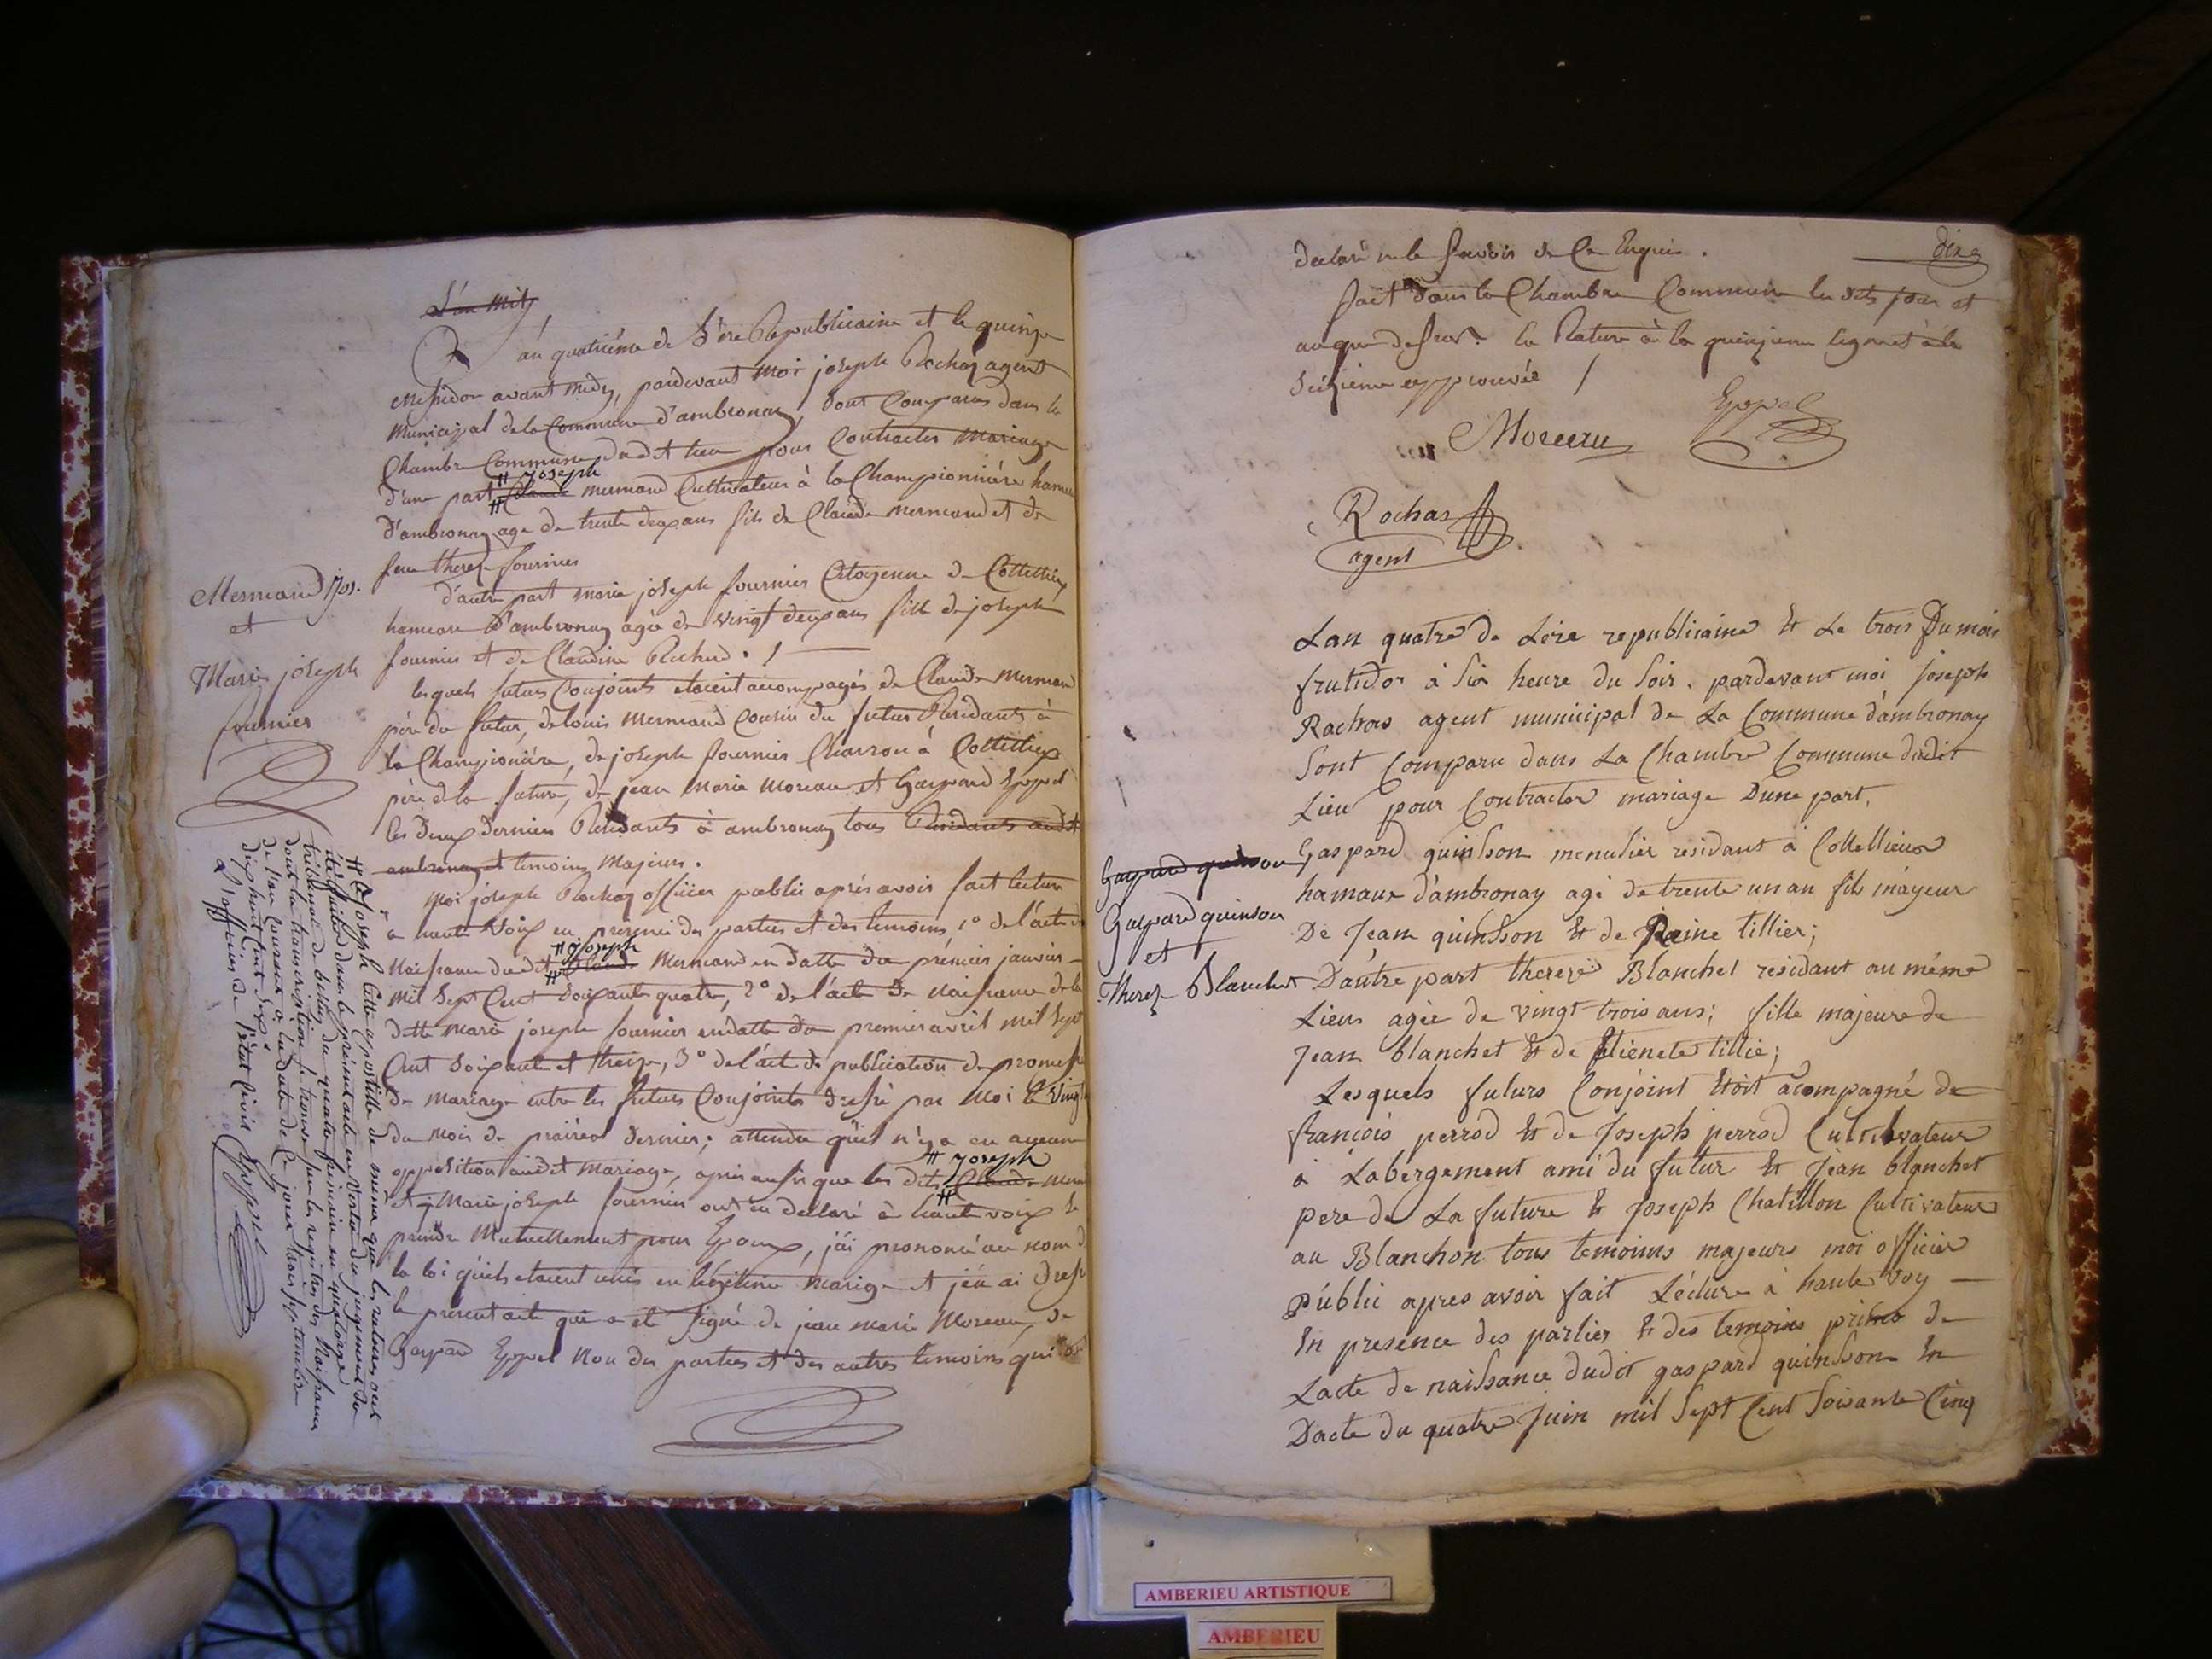 L'an Mil
an quatrième de L'ère Republicaine et le quinze
Messidor avant midy, pardevant Moi joseph Rochas agent
Municipal de la Commune d'ambronay, sont Comparus dans la
Chambre Commune dudit lieu pour Contracter Mariage
# joseph
d'une part Claude mermand Cultivateur à la Championnière hameau
d'ambronay age de trente deux ans fils de Claude mermand et de
feue therese fournier
d'autre part marie joseph fournier Citoyenne de Cottellieux
hameau d'ambronay agée de vingt deux ans fille de joseph
fournier et de Claudine Rochard.
Mermand jos.
et
Marie joseph
fournier
lesquels futurs Conjoints etoient accompagnés de Claude mermand
père du futur, de louis Mermand Cousin du futur Residants à
la Championière, de joseph fournier Charron à Cottellieux
père de la future, de jean Marie Moreau et Gaspard Eppel
les deux derniers Residants à ambronay tous Residants audit
ambronay et temoins Majeurs.
Moi joseph Rochas officier public après avoir fait lecture
a haute voix en presence des parties et des temoins, 1° de l'acte de
# joseph
Naissance dudit Claude Mermand en datte du premier janvier
mil sept Cent soixante quatre, 2° de l'acte de naissance de la
ditte marie joseph fournier en datte du premier avril mil sept
Cent soixante et treize, 3° de l'acte de publication de promesse
de mariage entre les futurs Conjoints dressé par Moi le vingt
du mois de prairéal dernier; attendu qu'il n'y a eu aucune
# joseph
opposition audit mariage, après aussi que les dits Claude mermand
et Marie joseph fournier ont eu declaré à haute voix se
prendre Mutuellement pour Epoux, j'ai prononcé au nom de
la loi qu'ils etoient unis en légitime mariage et j'en ai dressé
le present acte qui a été signé de jean marie Moreau, de
Gaspard Eppel non des parties et des autres temoins qui ont
# Joseph cette apostille de meme que les ratures ont
été faites dans le présent acte en vertu du jugement du
tribunal de belley du quatre frimaire an quatorze
dont la transcription se trouve sur les registres des Naissances
de l'an courant à la date de ce jour trois septembre
dix huit cent six
L'officier de l'état civil Eppel
dix
declaré ne le savoir de Ce Enquis.
fait dans la Chambre Commune les dits jour et
an que dessus. la Rature à la quinzieme ligne et à la
seizieme approuvée /
Moreau
Eppel
Rochas
agent
Lan quatre de Lère republicaine Et Le trois Du mois
frutidor à Six heure du Soir. pardevant moi Joseph
Rachas agent municipal de La Commune d'ambronay
Sont Comparu dans La Chambre Commune dudit
Lieu pour Contracter mariage Dune part,
Gaspard quinson
Gaspard quinson
et
Therese Blanchet
Gaspard quinsson menusier residant à Cottellieux
hamaux d'ambronay agé de trente un an fils mayeur
De Jean quinsson Et de Reine tillier;
D'autre part therese Blanchet residant au même
Lieux agée de vingt trois ans; fille majeure de
Jean blanchet Et de Etienete tillié;
Lesquels futurs Conjoint Etoit acompagné de
françois perrod Et de Joseph perrod Cultibvateur
à Labergement ami du futur Et Jean blanchet
pere de La future Et Joseph Chatillon Cultivateur
au Blanchon tous temoims majeurs moi officier
Public apres avoir fait Lécture à haute voy
En presence des parties Et des temoins primo de
Lacte de naissance dudit gaspard quinsson En
Dacte du quatre Juin mil Sept Cent Soixante Cinq
AMBERIEU ARTISTIQUE
AMBERIEU